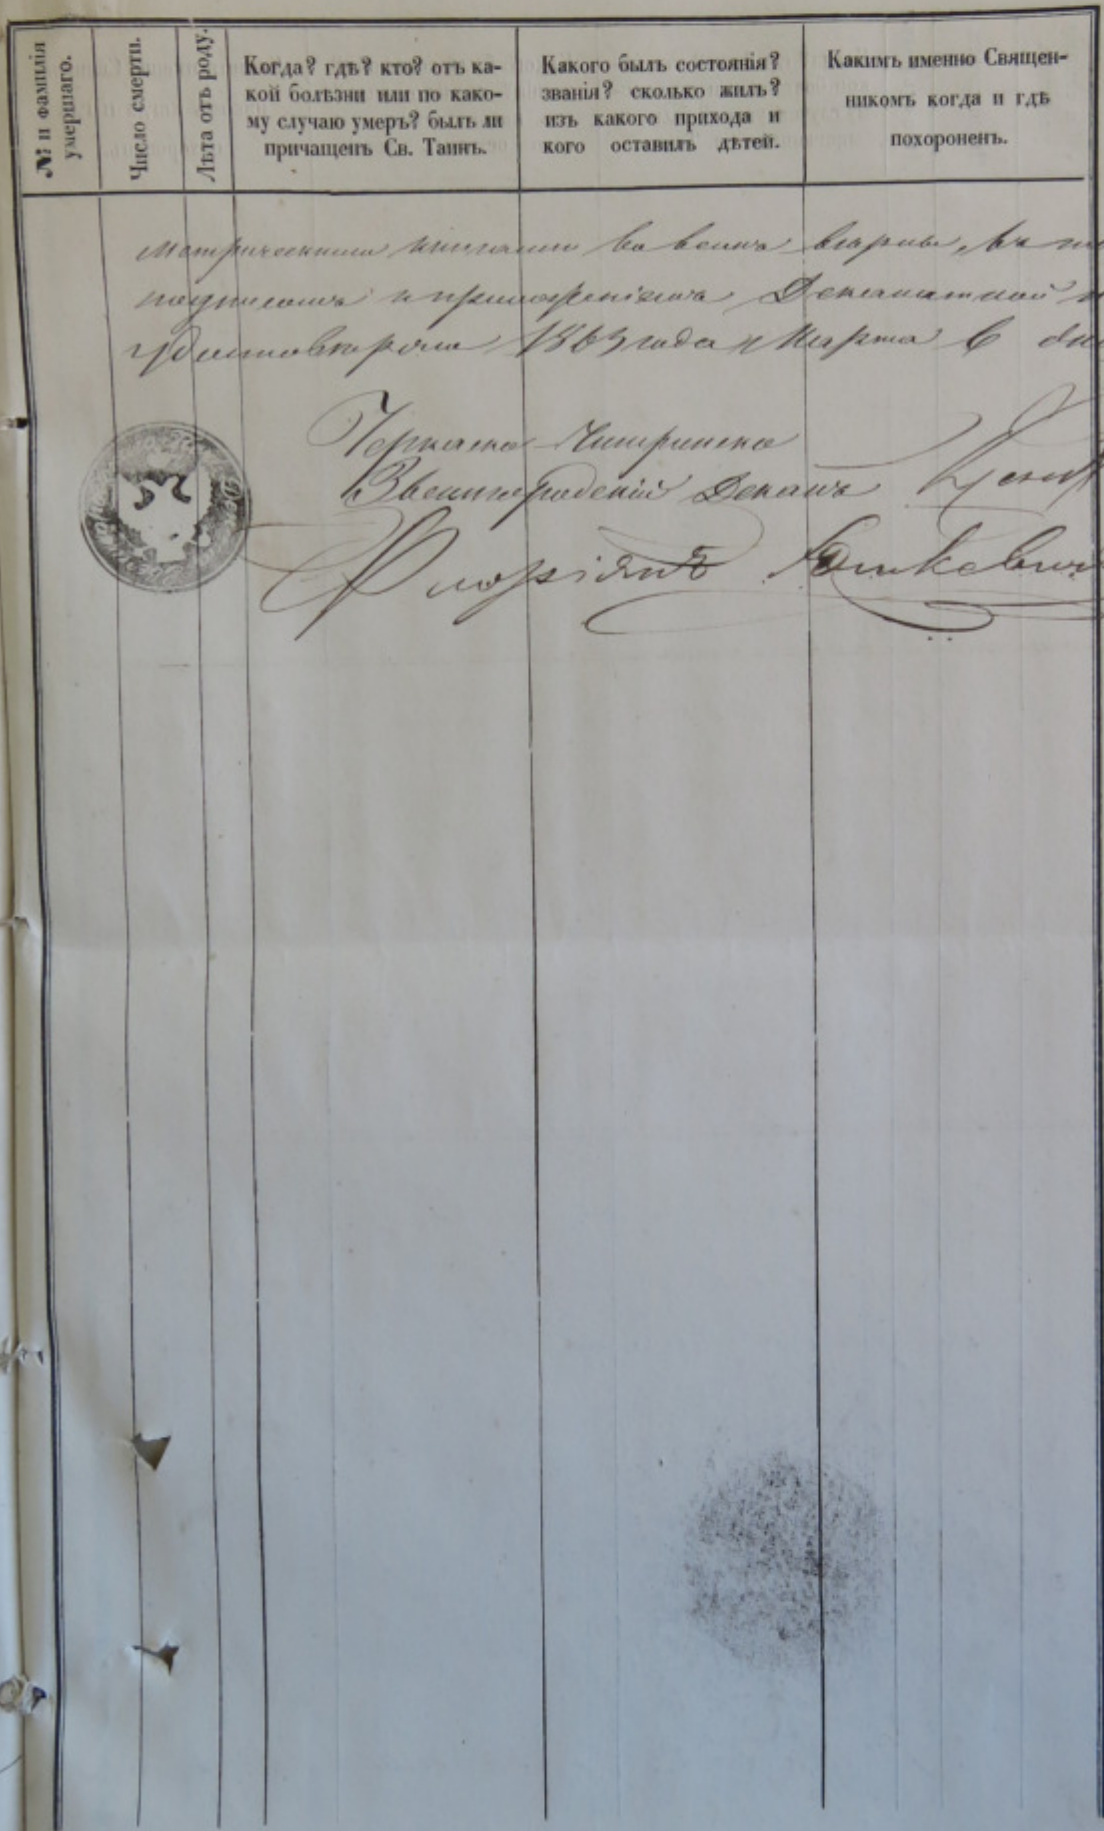 № и фамилія
умершаго.
Число смерти.
Лѣта отъ роду.
Когда? гдѣ? кто? отъ ка-
кой болѣзни или по како-
му случаю умеръ? былъ ли
причащенъ Св. Таинъ.
Какого былъ состоянія?
званія? сколько жилъ?
изъ какого прихода и
кого оставилъ дѣтей.
Какимъ именно Священ-
никомъ когда и гдѣ
похороненъ.
метрическими книгами во всемъ вѣрны, въ
подписомъ и приложеніемъ Деканатной
удостовѣряю 1863 года Марта 6
Черкаско-Чигиринско
Звенигородскій Деканъ
Флоріянъ Юшкевичъ